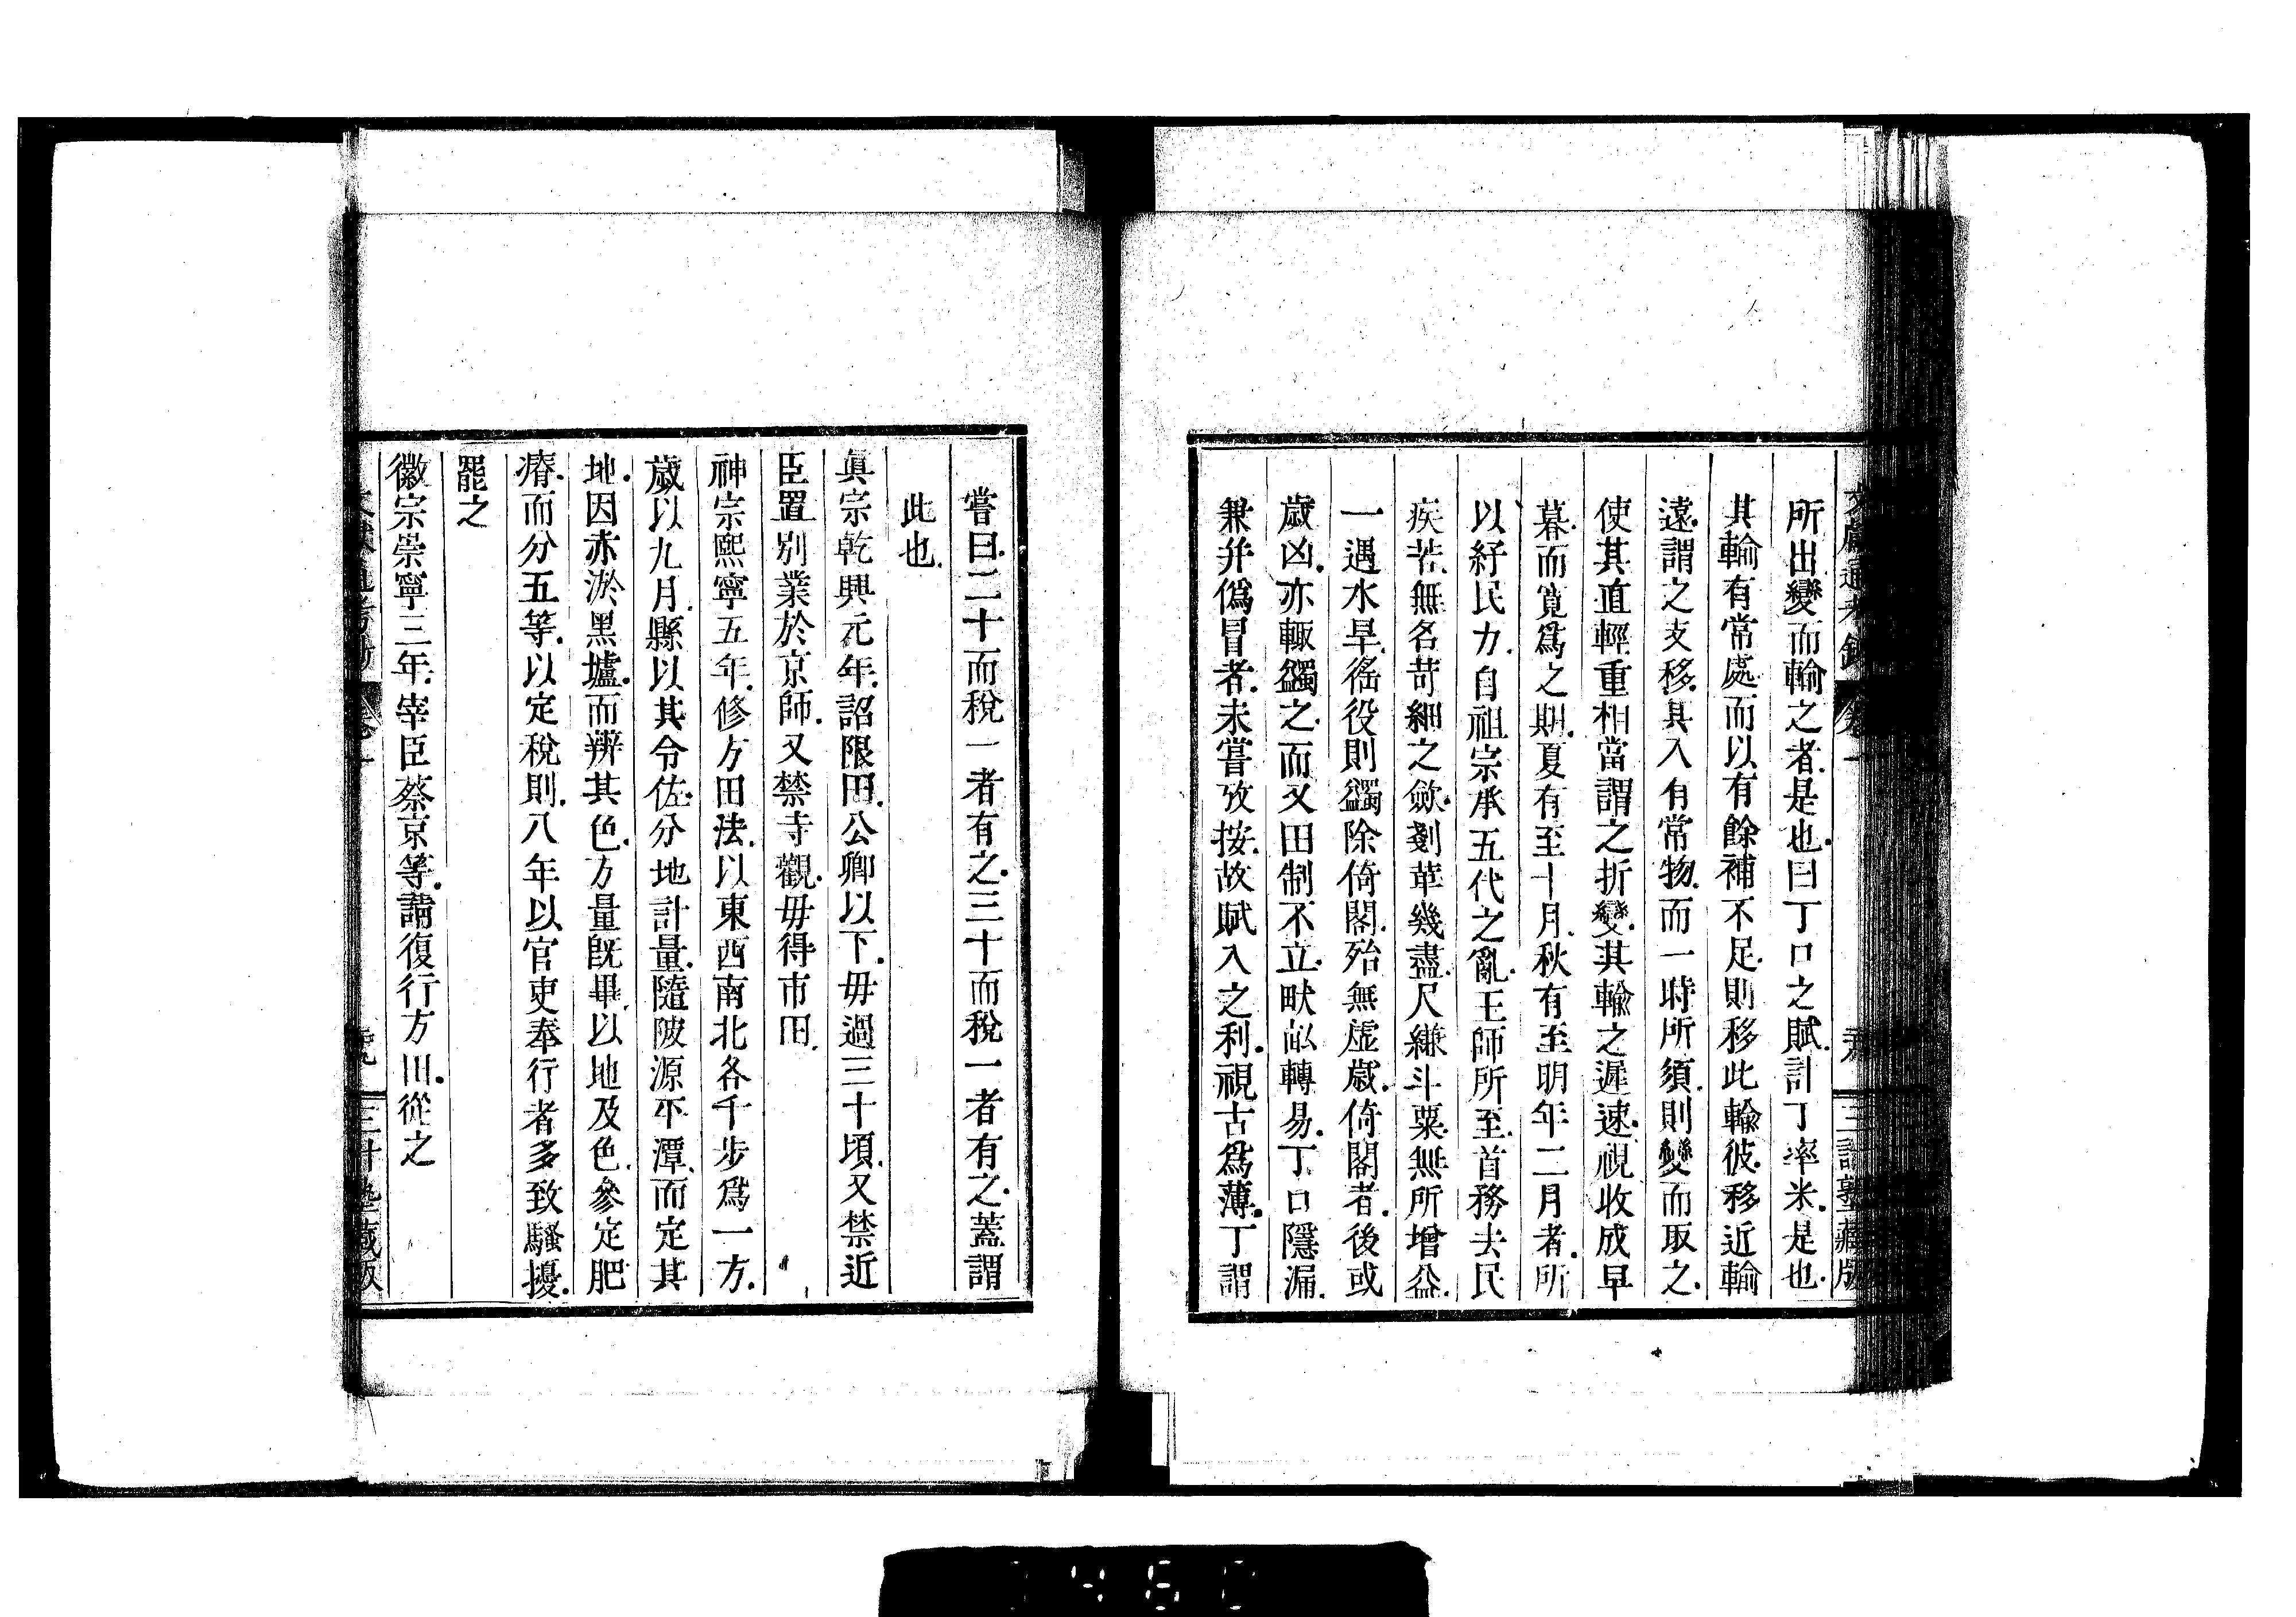 文獻通考鈔　卷一
三訂塾藏版
所出變而輸之者是也曰丁口之賦計丁率米是也
其輸有常處而以有餘補不足則移此輸彼移近輸
遠謂之支移其入有常物而一時所須則變而取之
使其直輕重相當謂之折變其輸之遲速視收成早
暮而寬爲之期夏有至十月秋有至明年二月者所
以紓民力自祖宗承五代之亂王師所至首務去民
疾苦無名苛細之斂剗革幾盡尺縑斗粟無所增益
一遇水旱徭役則蠲除倚閣殆無虛歲倚閣者後或
歲凶亦輙蠲之而又田制不立畎畝轉易丁口隱漏
兼并僞冒者未嘗攷按故賦入之利視古爲薄丁謂
嘗曰二十而稅一者有之三十而稅一者有之蓋謂
此也
眞宗乾興元年詔限田公卿以下毋過三十頃又禁近
臣置別業於京師又禁寺觀毋得市田
神宗熙寧五年修方田法以東西南北各千步爲一方
歲以九月縣以其令佐分地計量隨陂源平潭而定其
地因赤淤黑壚而辨其色方量旣畢以地及色參定肥
瘠而分五等以定稅則八年以官吏奉行者多致騷擾
罷之
徽宗崇寧三年宰臣蔡京等請復行方田從之